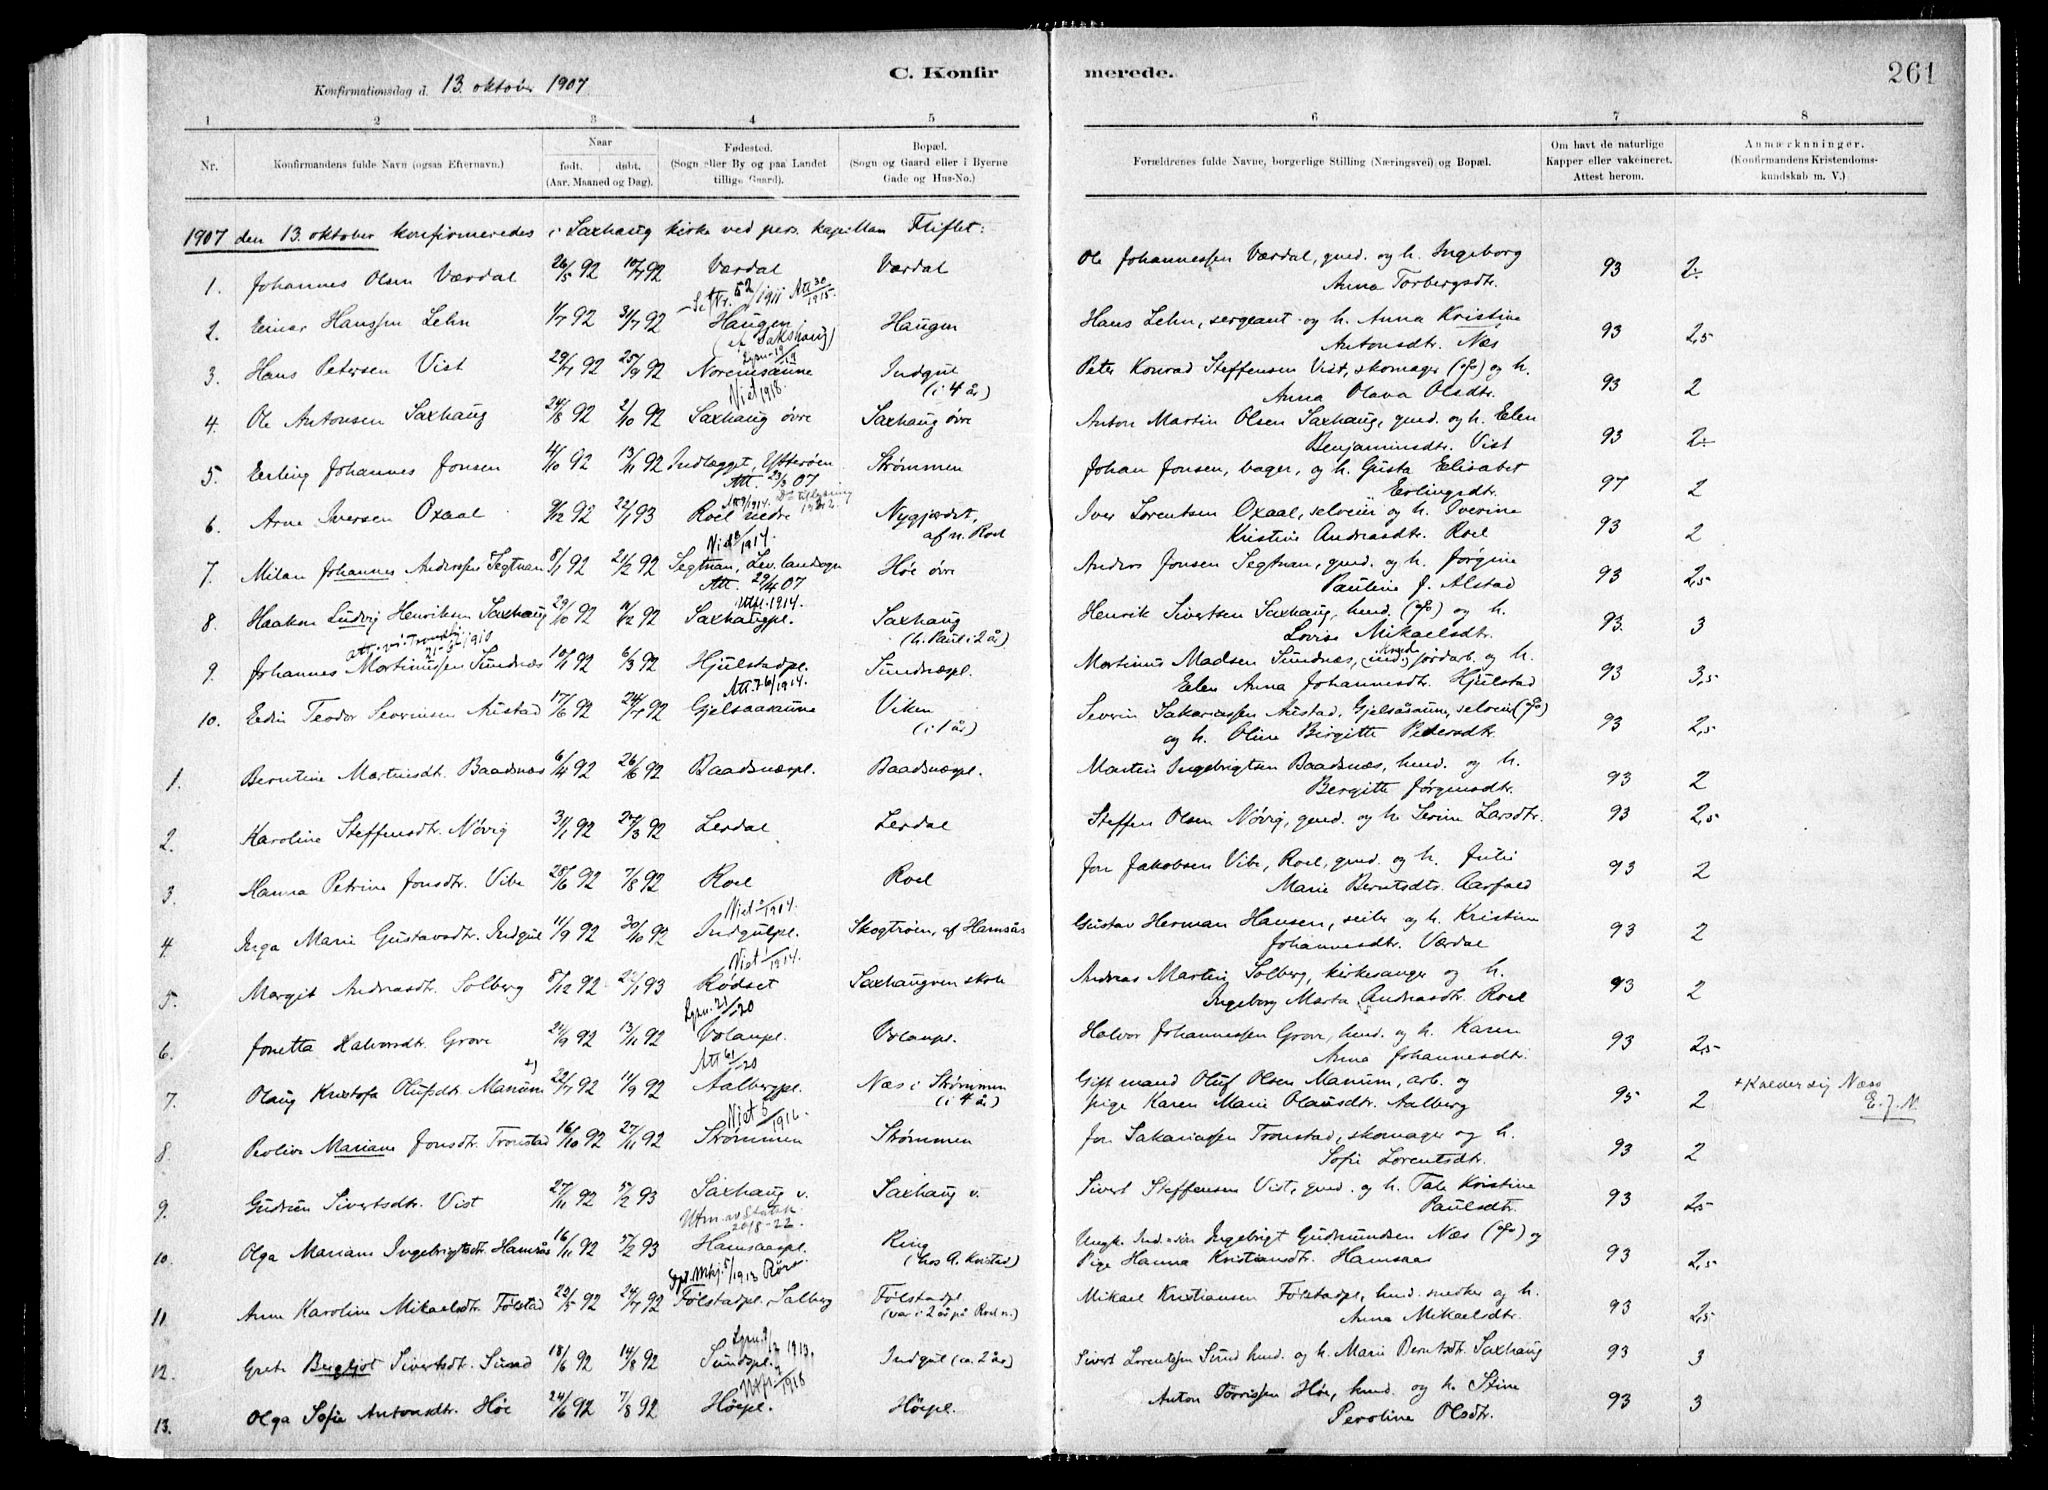 C. Konfir
merede.
261
Konfirmationsdag d. 13. oktober 1907.
1 2 3 4 5 6 7 8
Nr.
Konfirmandens fulde Navn (ogsaa Efternavn.)
Naar
født. døbt.
(Aar. Maaned og Dag).
Fødested.
(Sogn eller By og paa Landet
tillige Gaard).
Bopæl.
(Sogn og Gaard eller i Byerne
Gade og Hus-No.)
Forældrenes fulde Navne, borgerlige Stilling (Næringsvei) og Bopæl.
Om havt de naturlige
Kapper eller vakcineret.
Attest herom.
Anmærkninger.
(Konfirmandens Kristendoms-
kundskab m. V.)
1907 den 13. oktober konfirmeredes i Saxhaug kirke ved pers. kapellan Fliflet:
1. Johannes Olsen Værdal 26/5 92 10/7 92 Værdal Værdal Ole Johannessen Værdal, gmd. og h. Ingeborg 93 2÷
Anna Torbergsdtr.
2. Einar Hanssen Lehn 1/7 92 31/7 92 Haugen Haugen Hans Lehn, sergeant og h. Anna Kristine 93 2,5
(af Sakshaug) Antonsdtr. Næs
3. Hans Petersen Vist 29/7 92 25/9 92 Noremsaunne Indgul Peter Konrad Steffensen Vist, skomager og h. 93 2
(i 4 år) Anna Olava Olsdtr.
Viet 1918.
4. Ole Antonsen Saxhaug 24/8 92 2/10 92 Saxhaug övre Saxhaug övre Anton Martin Olsen Saxhaug, gmd. og h. Elen 93 2÷
Benjaminsdtr. Vist
5. Erling Johannes Jonsen 4/10 92 13/11 92 Indlægget, Ytterøen Strømmen Johan Jonsen, bager, og h. Gusta Elisabet 97 2
Att. 23/3 07 Erlingsdtr.
6. Arne Iversen Oxaal 9/12 92 22/1 93 Roel nedre Nygjærdet, Iver Lorentsen Oxaal, selveier og h. Overine 93 2
af n. Roel Kristine Andreasdtr. Roel
7. Milan Johannes Anderssen Segtnan 8/1 92 21/2 92 Segtnan, Lev. landsogn Höe övre Anders Jonsen Segtnan, gmd. og h. Jørgine 93 2,5
Att. 29/4 07 Pauline J. Alstad
8. Haakon Ludvig Henriksen Saxhaug 29/10 92 11/12 92 Saxhaugpl. Saxhaug Henrik Sivertsen Saxhaug, husmd. og h. 93 3
(h. Paul i 2 år) Lovise Mikaelsdtr.
9. Johannes Martinussen Sundnæs 10/1 92 6/3 92 Hjulstadpl. Sundnæspl. Martinus Madsen Sundnæs, jordarb. og h. 93 3,5
Elen Anna Johannesdtr. Hjulstad
10. Edin Teodor Severinsen Austad 17/6 92 24/7 92 Gjelsaasaune Viken Severin Sakariassen Austad, Gjelsåsaun, selveier 93 2,5
(i 1 år) og h. Oline Birgitte Pedersdtr.
1. Berntine Martinsdt. Baadsnæs 6/4 92 26/6 92 Baadsnæspl. Baadsnæspl. Martin Ingebrigtsen Baadsnæs, husmd. og h. 93 2
Bergitte Jørginsdtr.
2. Karoline Steffensdtr. Növig 31/1 92 27/3 92 Lerdal Lerdal Steffen Olsen Növig, gmd. og h. Serine Larsdtr. 93 2,5
3. Hanna Petrine Jonsdtr. Vibe 28/6 92 7/8 92 Roel Roel Jon Jakobsen Vibe, Roel, gmd. og h. Julie 93 2
Marie Berntsdtr. Aarfald
4 Inga Marie Gustavsdtr. Indgul 11/9 92 30/10 92 Indgulpl. Skogtrøen, af Hamsås Gustav Herman Hansen, seiler og h. Kristine 93 2
Johannesdtr. Værdal
Viet 1/1914.
5. Margit Andreasdtr. Solberg 8/12 92 22/1 93 Rødset Saxhaugven skole Andreas Martin Solberg, kirkesanger og h. 93 2
Ingeborg Marta Andreasdtr. Roel
6. Jonetta Halvorsdtr. Grove 24/9 92 13/11 92 Volanpl. Volanpl. Halvor Johannessen Grove, husmd. og h. Karen 93 2,5
Anna Johannesdtr.
7. Olaug Kristofa Olufsdtr. Manum +) 22/7 92 11/9 92 Aalbergpl. Næs i Strømmen Gift mand Oluf Olsen Manum, arb. og 95 2 + Kalder sig Næss
(i 4 år) pige Karen Marie Olausdtr. Aalberg E.J.N.
8. Peolive Mariane Jonsdtr. Tronstad 16/10 92 27/11 92 Strømmen Strømmen Jon Sakariassen Tronstad, skomager og h. 93 2
Sofie Lorentsdtr.
9. Gudrun Sivertsdtr. Vist 27/11 92 5/2 93 Saxhaug v. Saxhaug v. Sivert Steffensen Vist, gmd. og h. Tale Kristine 93 2,5
Paulsdtr.
10. Olga Mariane Ingebrigtsdtr. Hamsås 16/11 92 5/2 93 Hamsaaspl. Ring Ungk. Ingebrigt Gudmundsen Næs og 93 2,5
(hos A. Kvistad) Pige Hanna Kristiansdtr. Hamsaas
11. Anne Karoline Mikaelsdtr. Følstad 22/5 92 24/7 92 Følstadpl. Salberg Følstadpl. Mikael Kristiansen Følstadpl., husmd. snedker og h. 93 2,5
(var i 2 år på Roel n.) Anna Mikaelsdtr.
12. Grete Bergljot Sivertsdt. Sund 18/6 92 14/8 92 Sundspl. Indgul (ca. 2 år) Sivert Lorentssen Sund husmd. og h. Marie Berntsdtr. Saxhaug 93 3
13. Olga Sofie Antonsdtr. Höe 24/6 92 7/8 92 Höepl. Höepl. Anton Pörrissen Höe, husmd. og h. Stine 93 3
Peroline Olsdtr.